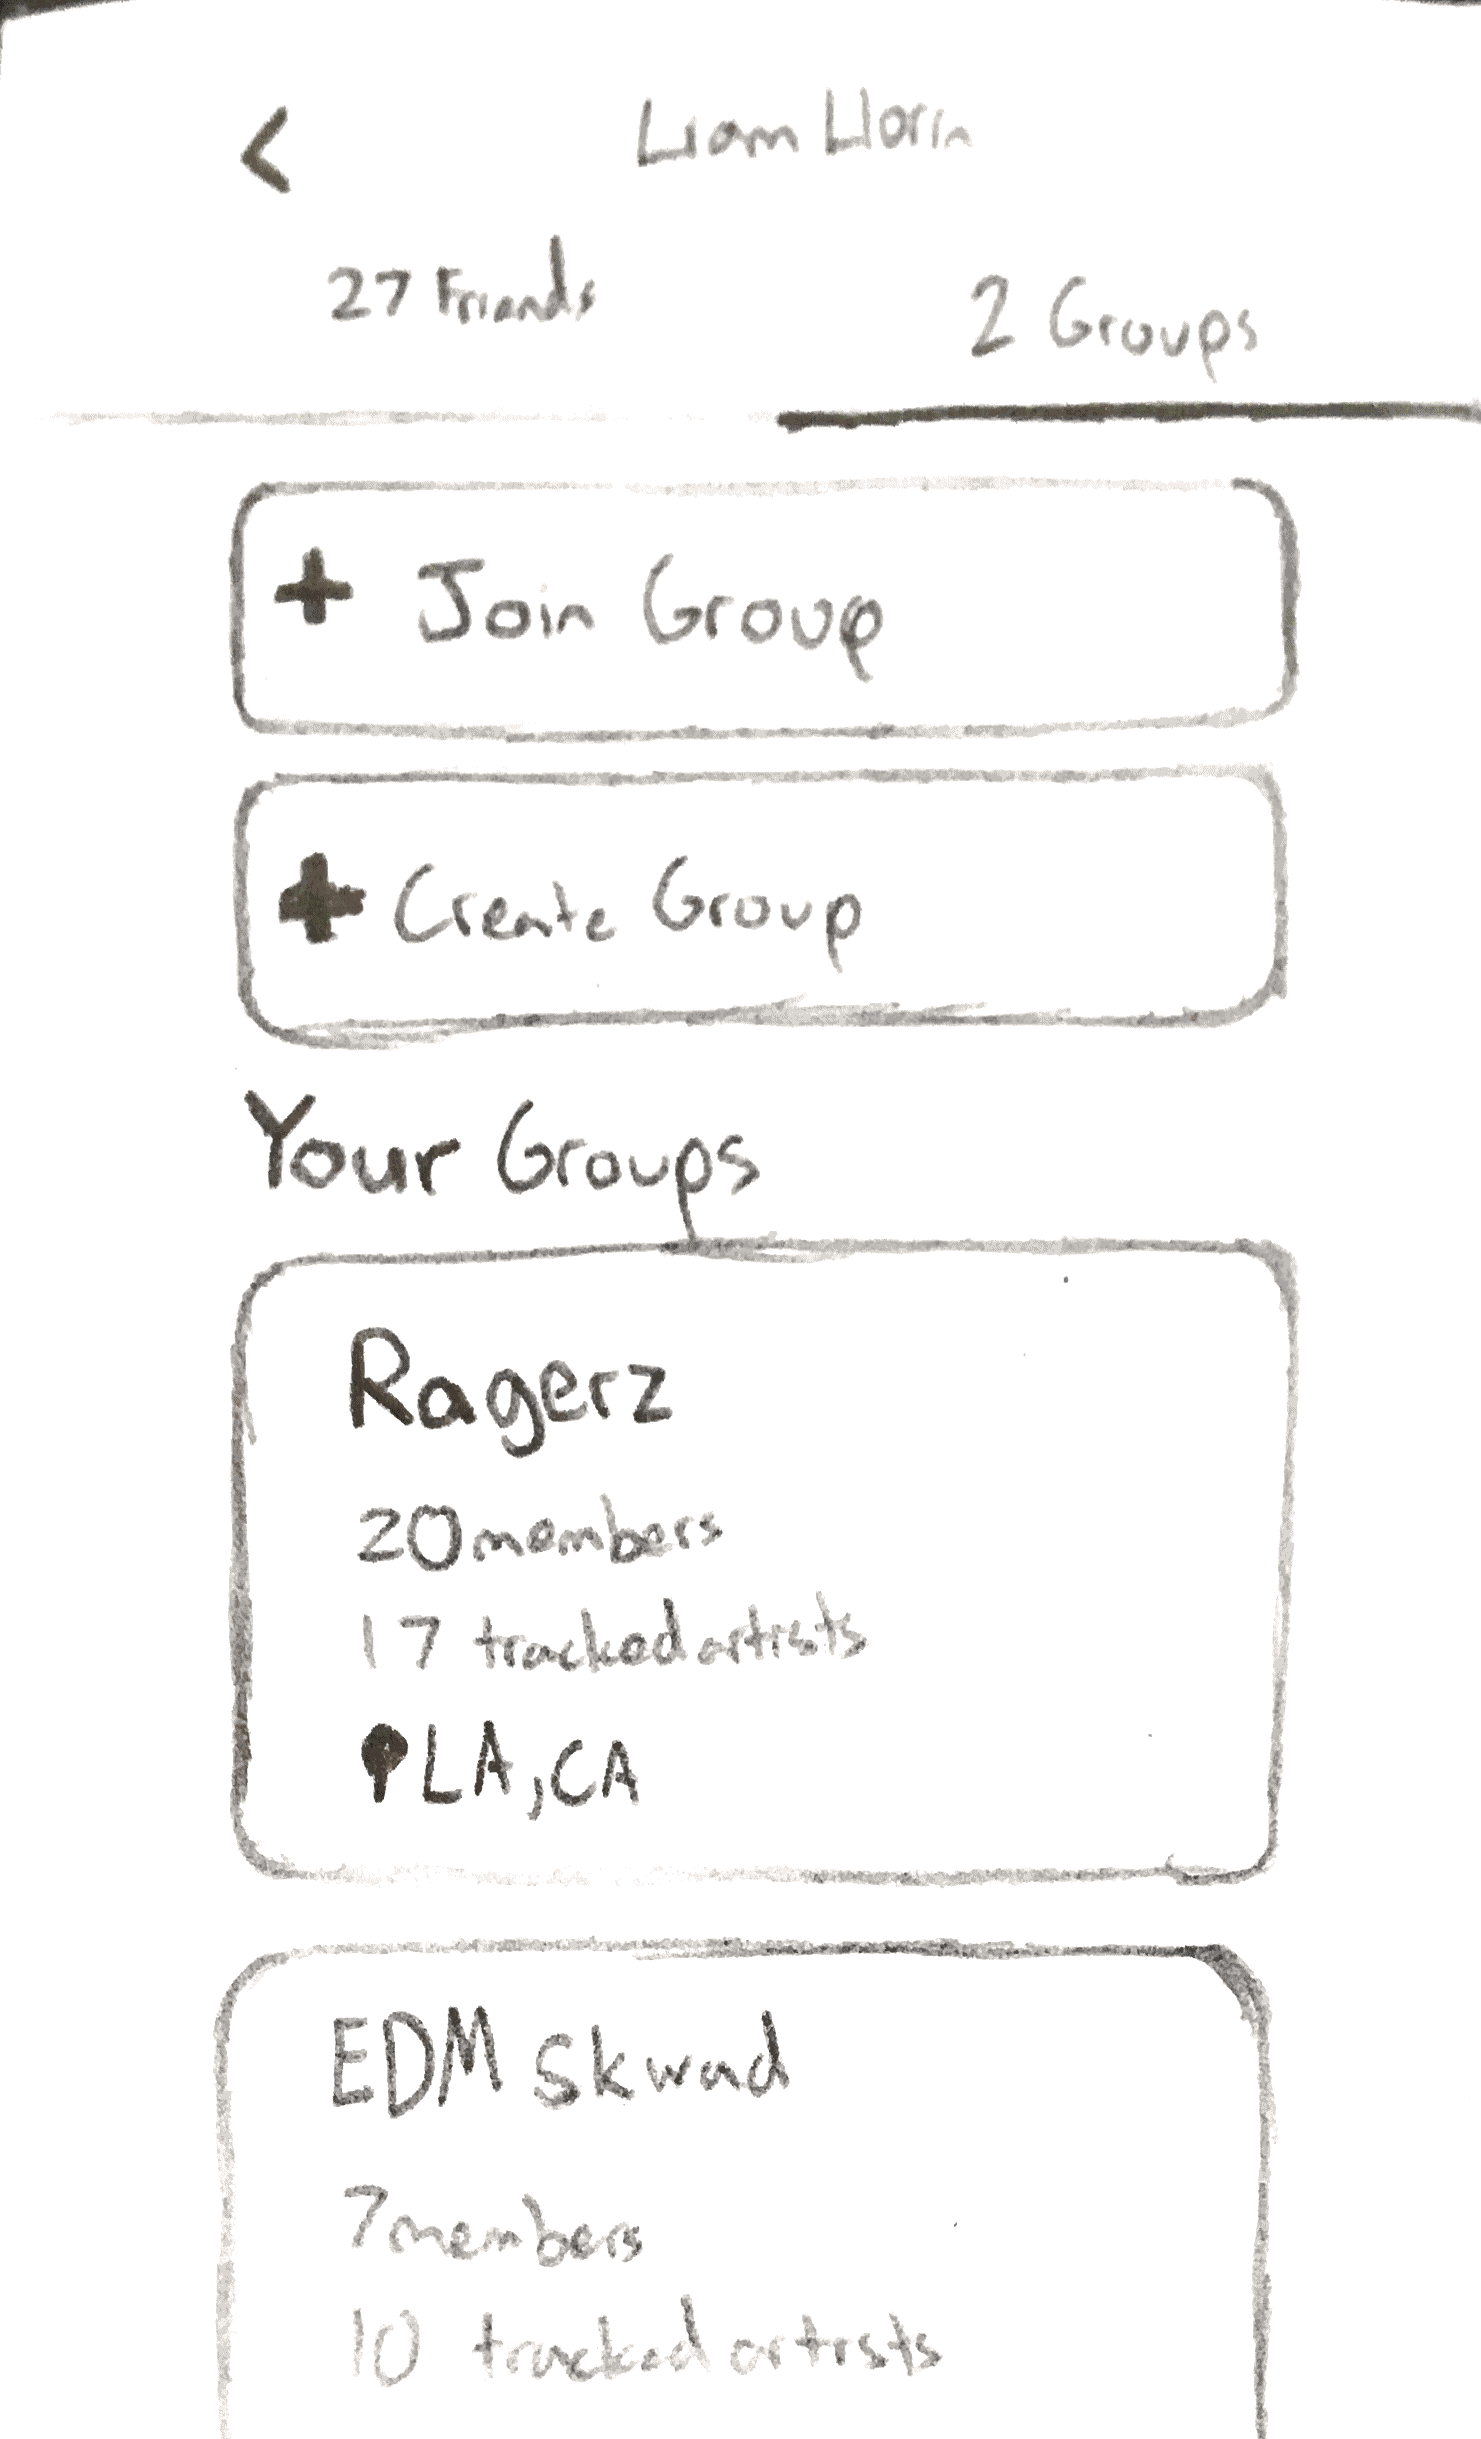 Liam Llorin
27 Friends
2 Groups
Join Group
Create Group
Your Groups
Ragerz
20 members
17 tracked artists
LA, CA
EDM Skwad
7 members
10 tracked artists